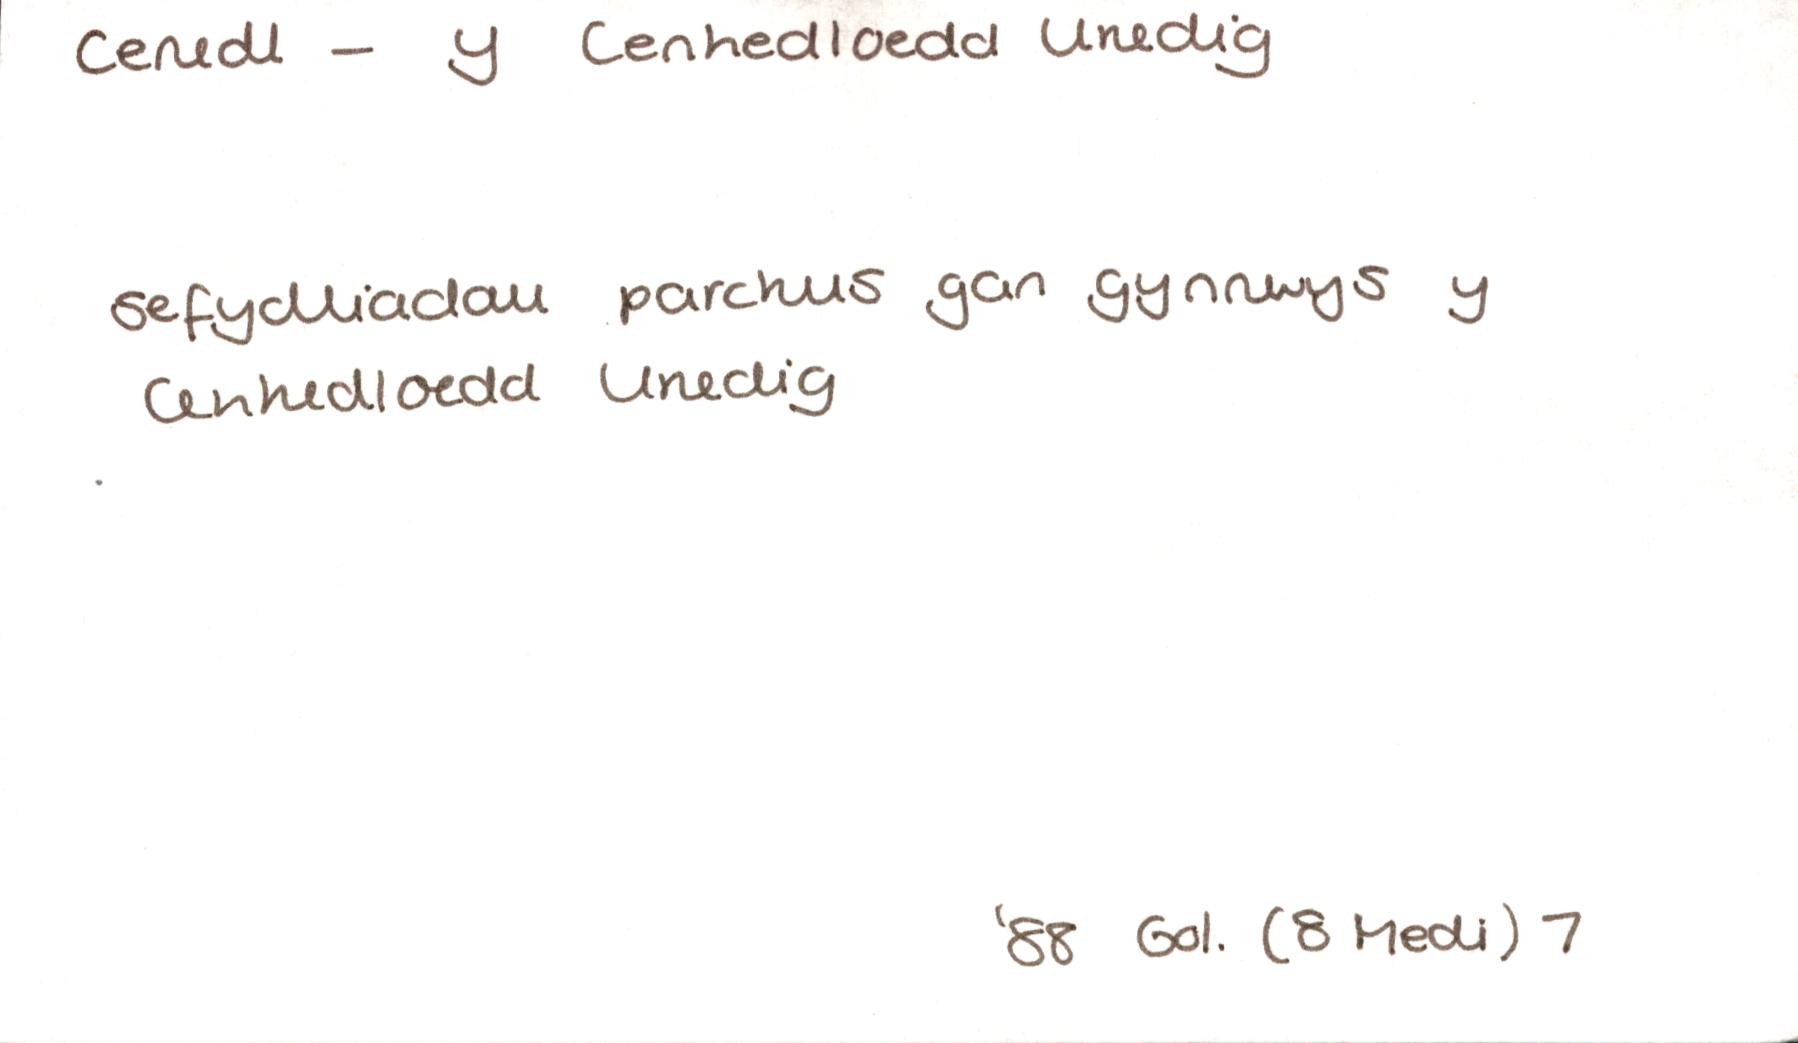 Cenedl - y Cenhedloedd Unedig
sefydliadau parchus gan gynnwys y
Cenhedloedd Unedig
'88 Gol. (8 Medi) 7